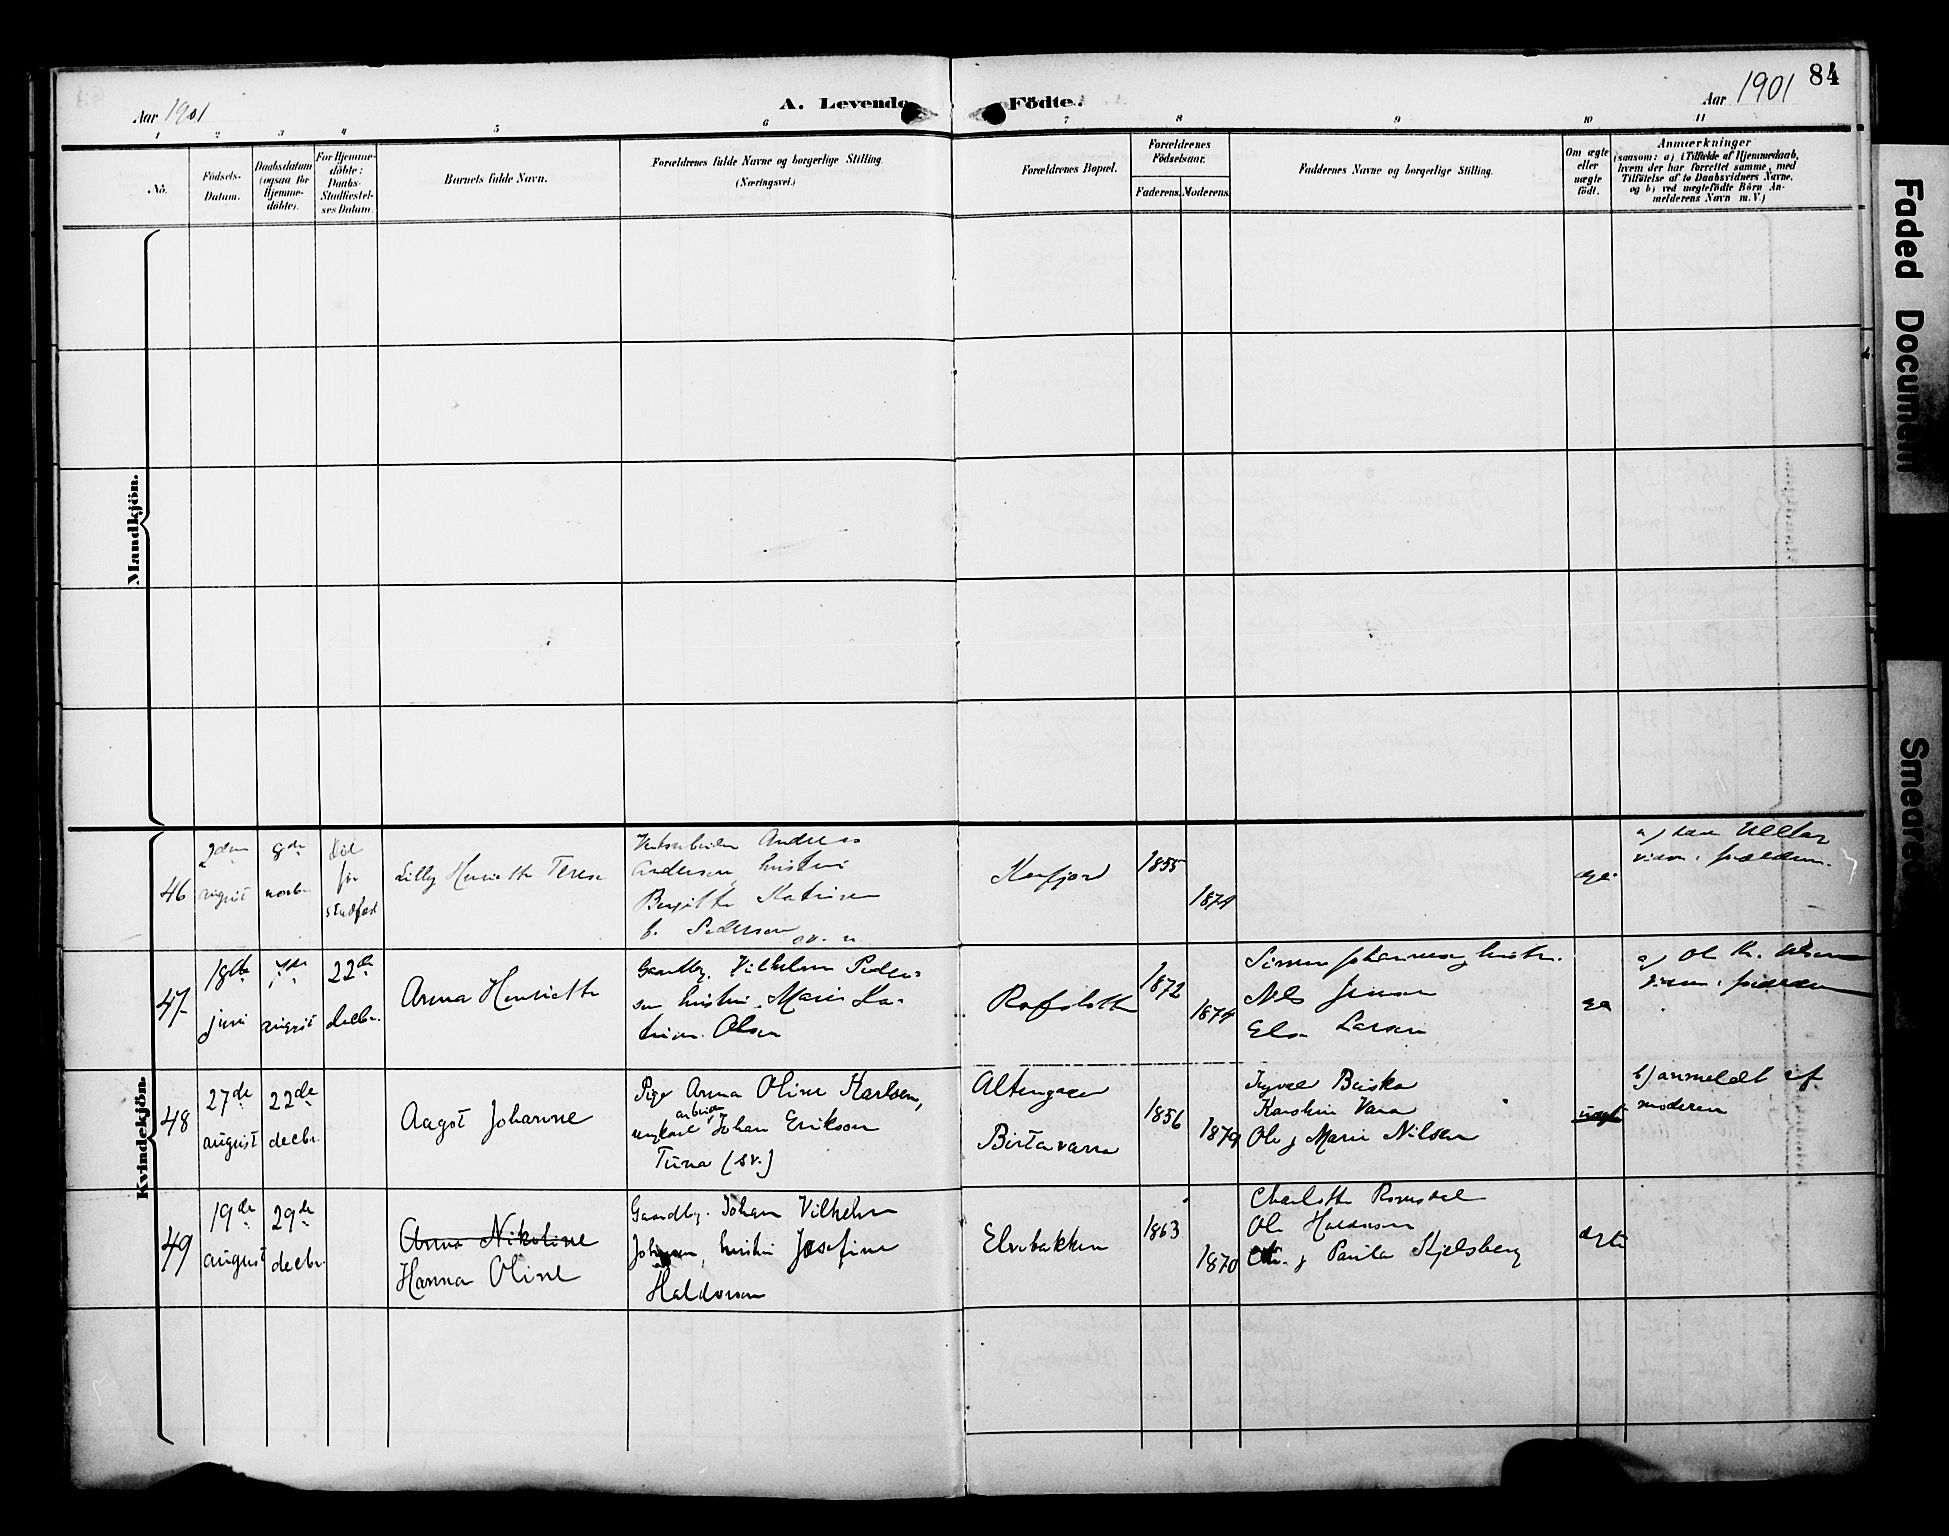 84
Aar 1901
A. Levende Födte.
Aar 1901
1 2 3 4 5 6 7 8 9 10 11
No.
Födsels-
Datum.
Daabsdatum
(ogsaa for
Hjemme-
döbte).
For Hjemme-
döbte:
Daabs-
Stadfæstel-
ses Datum.
Barnets fulde Navn.
Forældrenes fulde Navne og borgerlige Stilling.
(Næringsvei.)
Forældrenes Bopæl.
Forældrenes
Födselsaar.
Faderens. Moderens.
Faddernes Navne og borgerlige Stilling.
Om ægte
eller
uægte
født.
Anmærkninger
(saasom: a) i Tilfælde af Hjemmedaab,
hvem der har forrettet samme, med
Tilföielse af to Daabsvidners Navne.
og b) ved uægtefödte Börn An-
melderens Navn m. V.)
Mandkjön.
Kvindekjön.
46
2den
august
8de
novbr.
död
för
stadfæst
Lilly Henriette Terese
Andreas
Andersen, hustru
Birgitte Katrine
f. Pedersen
Kaafjord
1855
1874
47
18de
juni
7de
august
22de
decbr.
Anna Henriette
Gaardbr. Vilhelm Peder-
sen hustru Marie Ka-
trine Olsen
Rafsbotn
1872
1874
Simon Johannesen hustru.
Nils Jensen
Else Larsen
48
27de
august
22de
decbr.
Aagot Johanne
Pige Anna Oline Karlsen,
arbeider
ungkarl Johan Erikson
Tuna (sv.)
Altengaard
Birtavarre
1856
1879
Karoline Vara
Ole & Marie Nilsen
uægte
b) anmeldt af
moderen
49
19de
august
29de
decbr.
Anna Nikoline
Hanna Oline
Gaardbr. Johan Vilhelm
Johansen, hustru Josefine
Haldorsen
Elvebakken
1863
1870
Charlotte Romsdal
Ole Haldorsen
Chr. & Paula Kjelsberg
ægte
Faded Document
Smeared